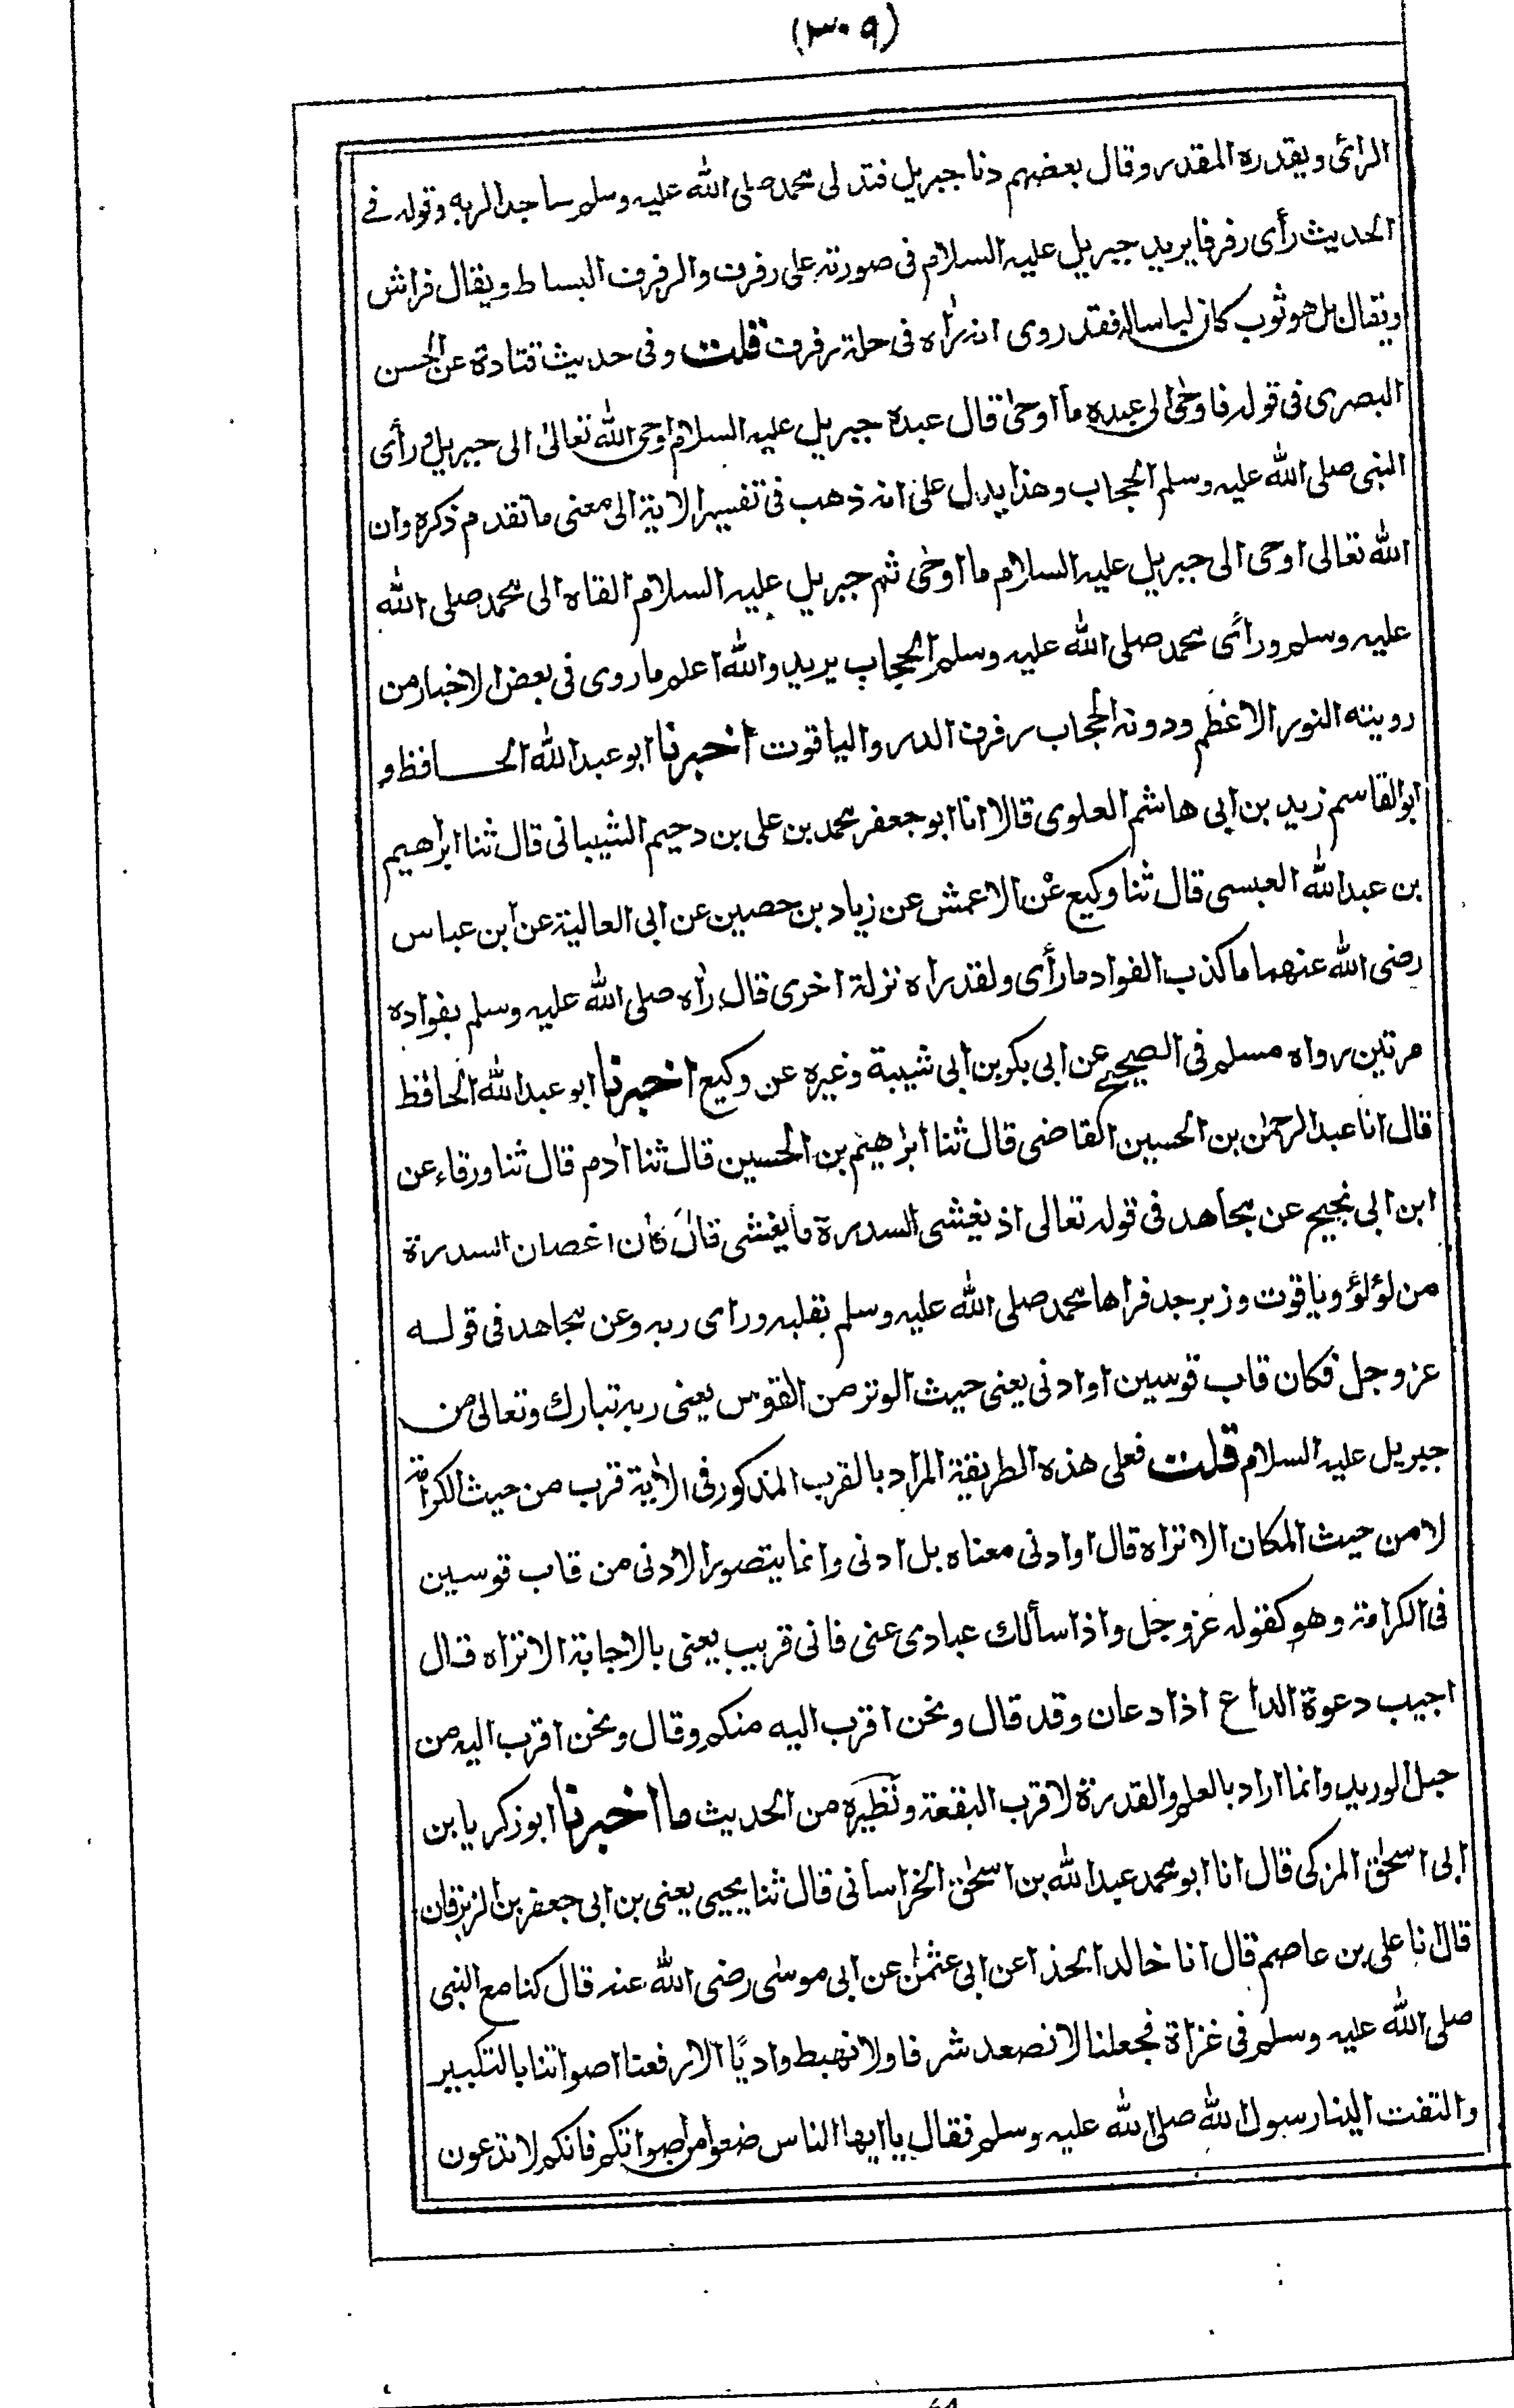 (٣٠٩)
الرائى ويقدره المقدر وقال بعضهم دنا جبريل فتدلى محمد صلى الله عليه وسلم ساجدا لربه وقوله فے
الحديث رأى رفرفا يريد جبريل عليه السلام فى صورته على رفرف والرفرف البساط ويقال فراش
ويقال بل هو ثوب كان لباسا له فقد روى انه رأه فى حلة رفرف قلت وفى حديث قتادة عن الحسن
البصرى فى قوله فاوحى الى عبده ما اوحى قال عبده جبريل عليه السلام اوحى الله تعالى الى جبريل ورأى
النبى صلى الله عليه وسلم الحجاب وهذا يدل على انه ذهب فى تفسير الاية الى معنى ما تقدم ذكره وان
الله تعالى اوحى الى جبريل عليه السلام ما اوحى ثم جبريل عليه السلام القاه الى محمد صلى الله
عليه وسلم ورأى محمد صلى الله عليه وسلم الحجاب يريد والله اعلم ما روى فى بعض الاخبار من
رويته النور الاعظم ودونه الحجاب رفرف الدر والياقوت اخبرنا ابو عبد الله الحافظ و
ابو القاسم زيد بن ابى هاشم العلوى قالا انا ابو جعفر محمد بن على بن دحيم الشيبانى قال ثنا ابراهيم
بن عبد الله العبسى قال ثنا وكيع عن الاعمش عن زياد بن حصين عن ابى العالية عن ابن عباس
رضى الله عنهما ما كذب الفواد ما رأى ولقد راه نزلة اخرى قال رأه صلى الله عليه وسلم بفواده
مرتين رواه مسلم فى الصحيح عن ابى بكر بن ابى شيبة وغيره عن وكيع اخبرنا ابو عبد الله الحافظ
قال انا عبد الرحمن بن الحسين القاضى قال ثنا ابراهيم بن الحسين قال ثنا ادم قال ثنا ورقاء عن
ابن ابى نجيح عن مجاهد فى قوله تعالى اذ يغشى السدرة ما يغشى قال كان اغصان السدرة
من لؤلؤ وياقوت وزبرجد فراها محمد صلى الله عليه وسلم بقلبه وراى ربه وعن مجاهد فى قوله
عز وجل فكان قاب قوسين او ادنى يعنى حيث الوتر من القوس يعنى ربه تبارك وتعالى من
جبريل عليه السلام قلت فعلى هذه الطريقة المراد بالقرب المذكور فى الاية قرب من حيث الكرامة
لا من حيث المكان الا تراه قال او ادنى معناه بل ادنى وانما يتصور الادنى من قاب قوسين
فى الكرامة وهو كقوله عز وجل واذا سألك عبادى عنى فانى قريب يعنى بالاجابة الا تراه قال
اجيب دعوة الداع اذا دعان وقد قال ونحن اقرب اليه منكم وقال ونحن اقرب اليه من
حبل الوريد وانما اراد بالعلم والقدرة لا قرب البقعة ونظيره من الحديث ما اخبرنا ابو زكريا بن
ابى اسحٰق المزكى قال انا ابو محمد عبد الله بن اسحٰق الخراسانى قال ثنا يحيى يعنى بن ابى جعفر بن الزبرقان
قال انا على بن عاصم قال انا خالد الحذا عن ابى عثمٰن عن ابى موسى رضى الله عنه قال كنا مع النبى
صلى الله عليه وسلم فى غزاة فجعلنا لا نصعد شرفا ولا نهبط واديًا الا رفعنا اصواتنا بالتكبير
والتفت الينا رسول الله صلى الله عليه وسلم فقال يا ايها الناس ضعوا من اصواتكم فانكم لا تدعون